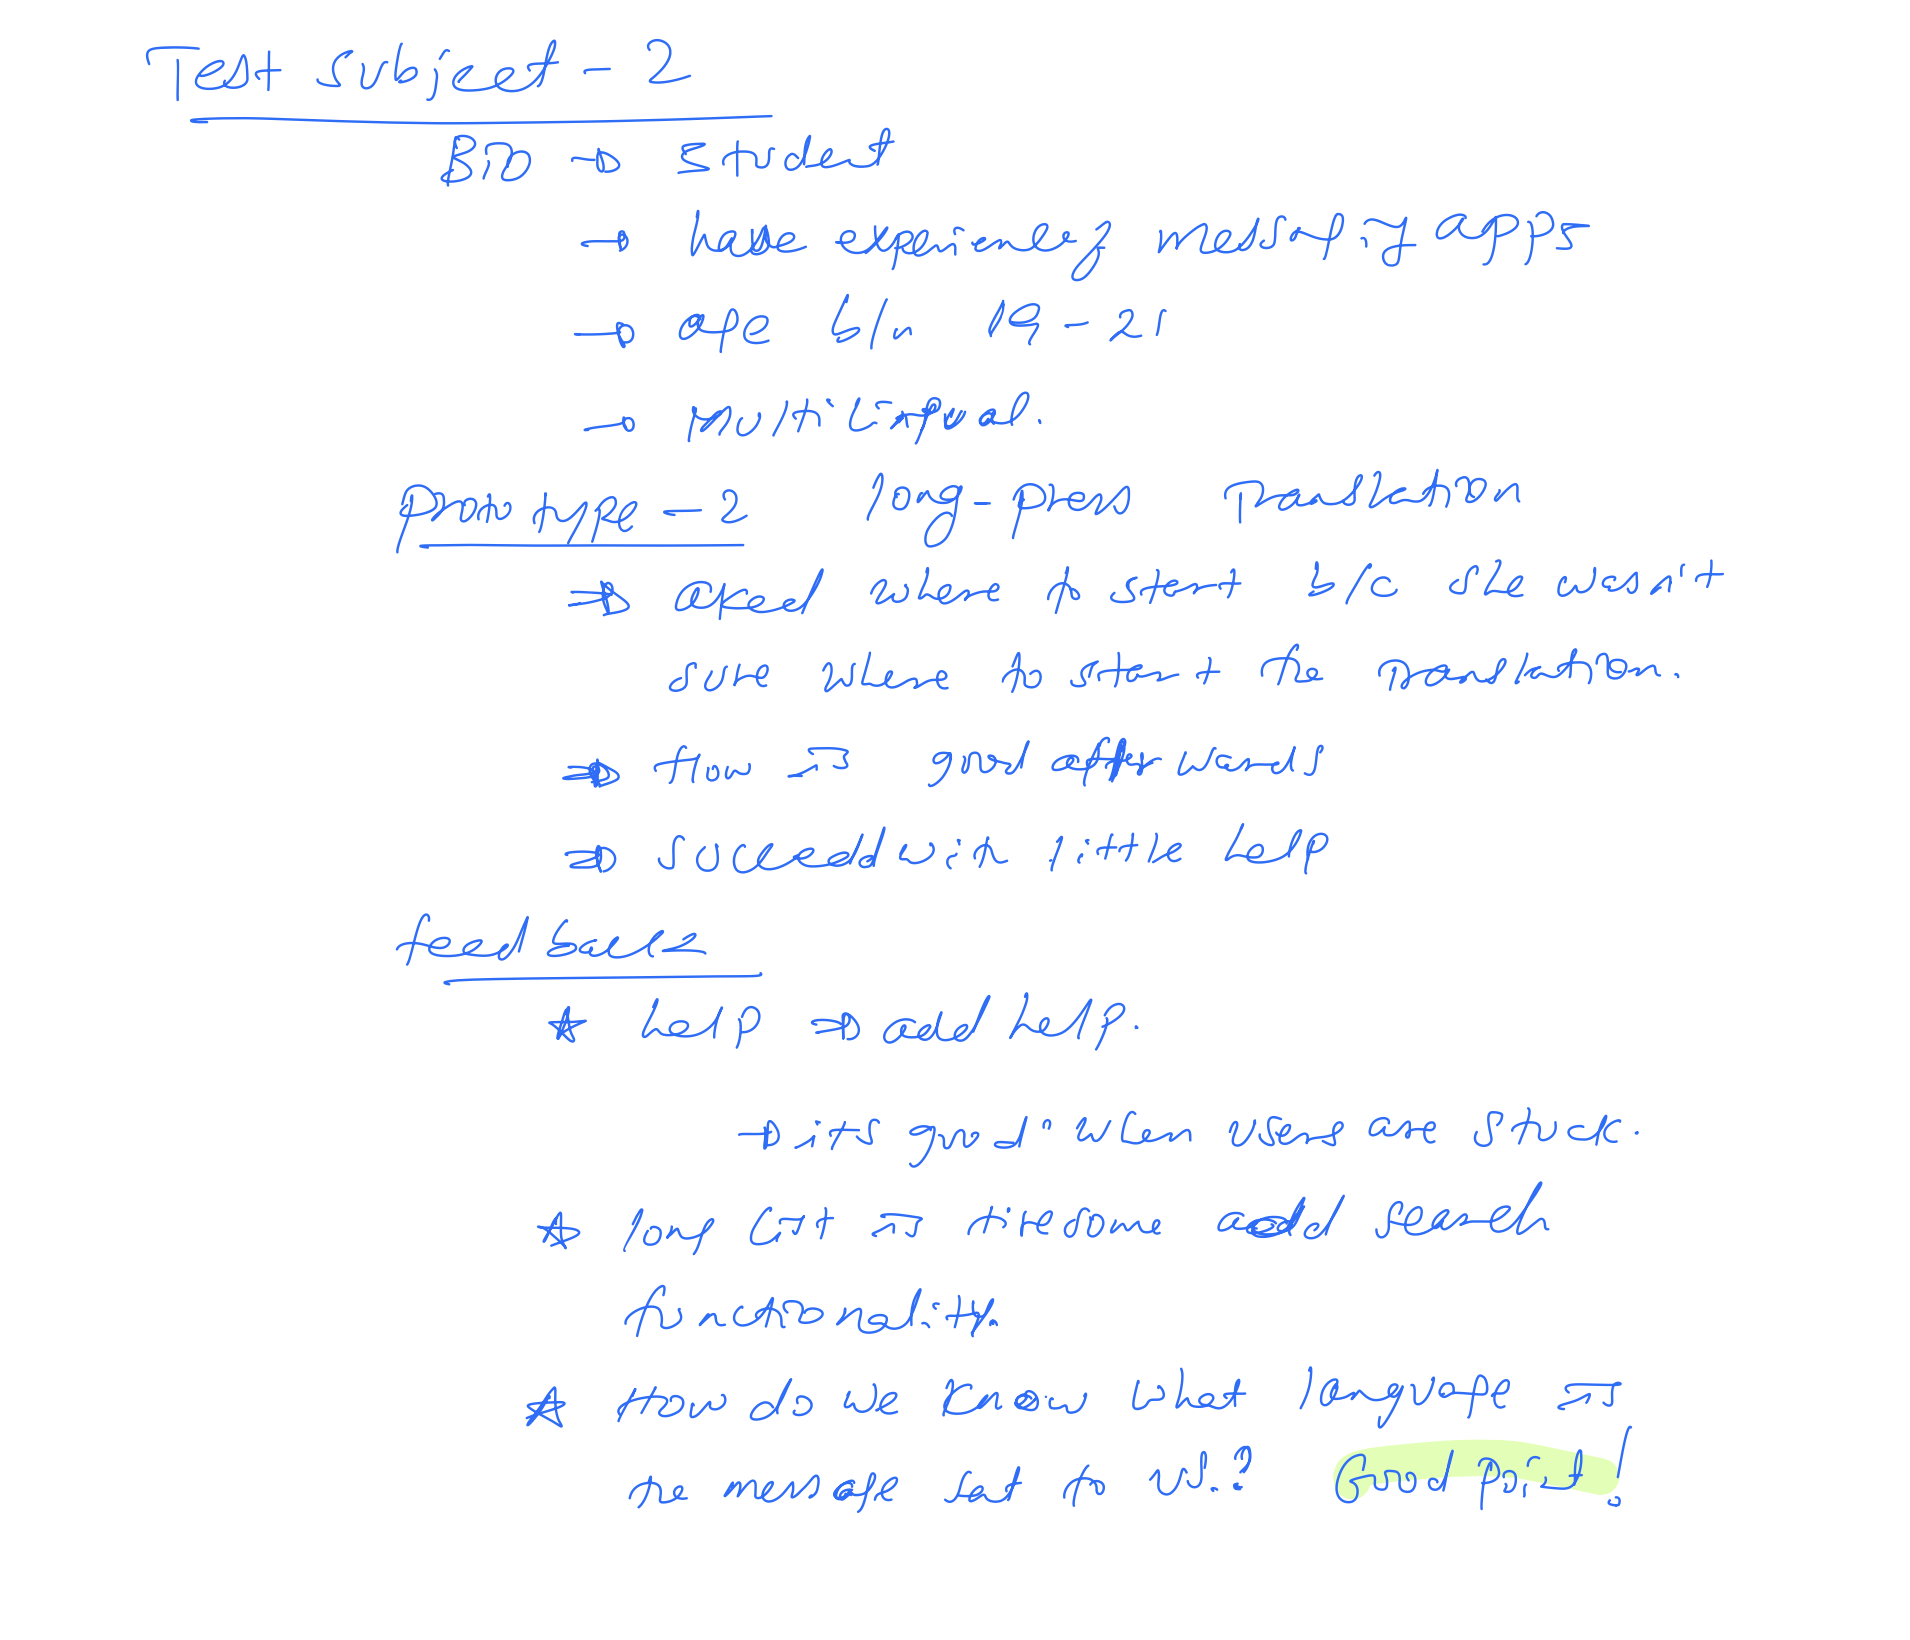 Test subject - 2
Bio → student
→ have experience of messaging apps
→ age b/n 19 - 21
→ Multilingual.
prototype - 2 long-press Translation
⇒ aked where to start b/c she wasn't
sure where to start the Translation.
⇒ flow is good afterwards
⇒ succeed with little help
feedback
☆ help ⇒ add help.
→ its good when users are stuck.
☆ long list is tiresome add search
functionality.
☆ How do we know what language is
the message sat to us.? Good point!